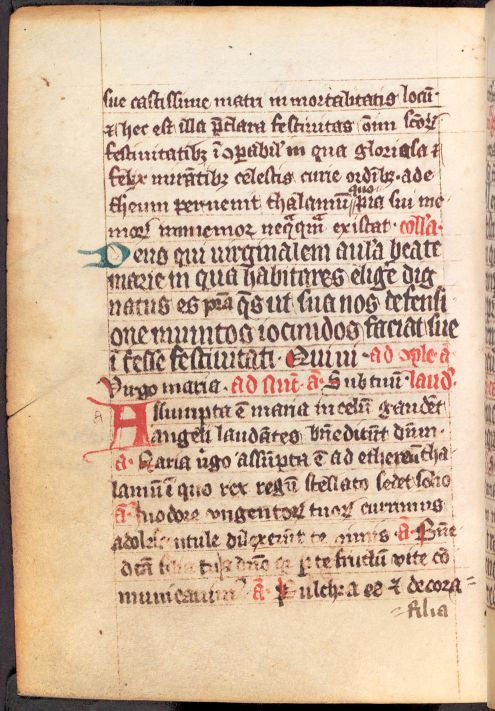 sue castissime matri inmortalitatis locū·
⁊ hec est illa p̄clara festiuitas om̄i sc̄oꝝ
festiuitatibꝫ īopabil' in qua gloriosa ⁊
felix mirātibꝫ celestis curie ordībꝫ· ade
thereum peruenit thalamū quo pia sui me
moꝝ inmemor neq̄q̄m existat· coll'a·
Deus qui uirginalem aula beate
marie in qua habitares elige dig
natus es p̄ra q̄s ut sua nos defensi
one munitos iocundos faciat sue
ītesse festiuitati· Qui ui· ad a᷑
Uirgo maria· ad a᷑· Sub tuū· laud᷑·
Assumpta ē maria in celū gaudēt
a angeli laudātes bn̄edicūt dn̄m·
a᷑· Maria ūgo assūpta ē ad ethereū tha
lamū ī quo rex regū stellato sedet solio
a᷑· In odore ungentoꝝ tuoꝝ currimus
adolescentule dilexerūt te nimis· a᷑· Bn̄e
dicā filia tu a dn̄o qꝫ p te fructū uite cō
municauim᷒· a᷑· Pulchra es ⁊ decora =
= filia